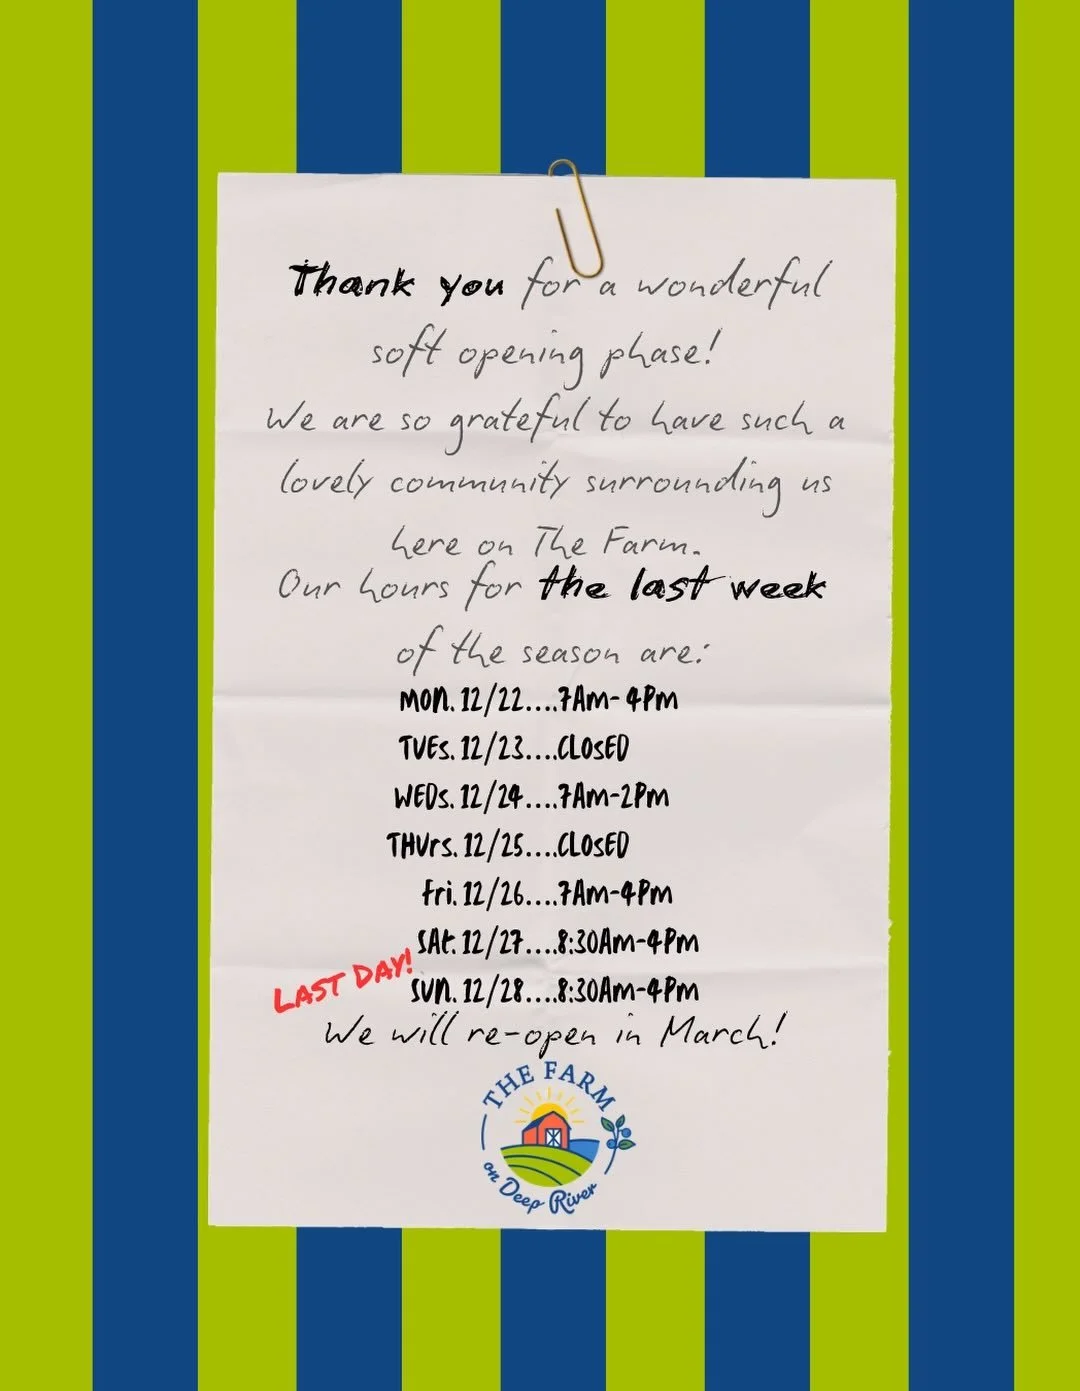 Thank you for a wonderful
soft opening phase!
We are so grateful to have such a
lovely community surrounding us
here on The Farm.
Our hours for the last week
of the season are:
MON. 12/22....7AM-4PM
TUES. 12/23....CLOSED
WEDS. 12/24....7AM-2PM
THURS. 12/25....CLOSED
FRI. 12/26....7AM-4PM
SAT. 12/27....8:30AM-4PM
LAST DAY!
SUN. 12/28....8:30AM-4PM
We will re-open in March!
THE FARM
on Deep River